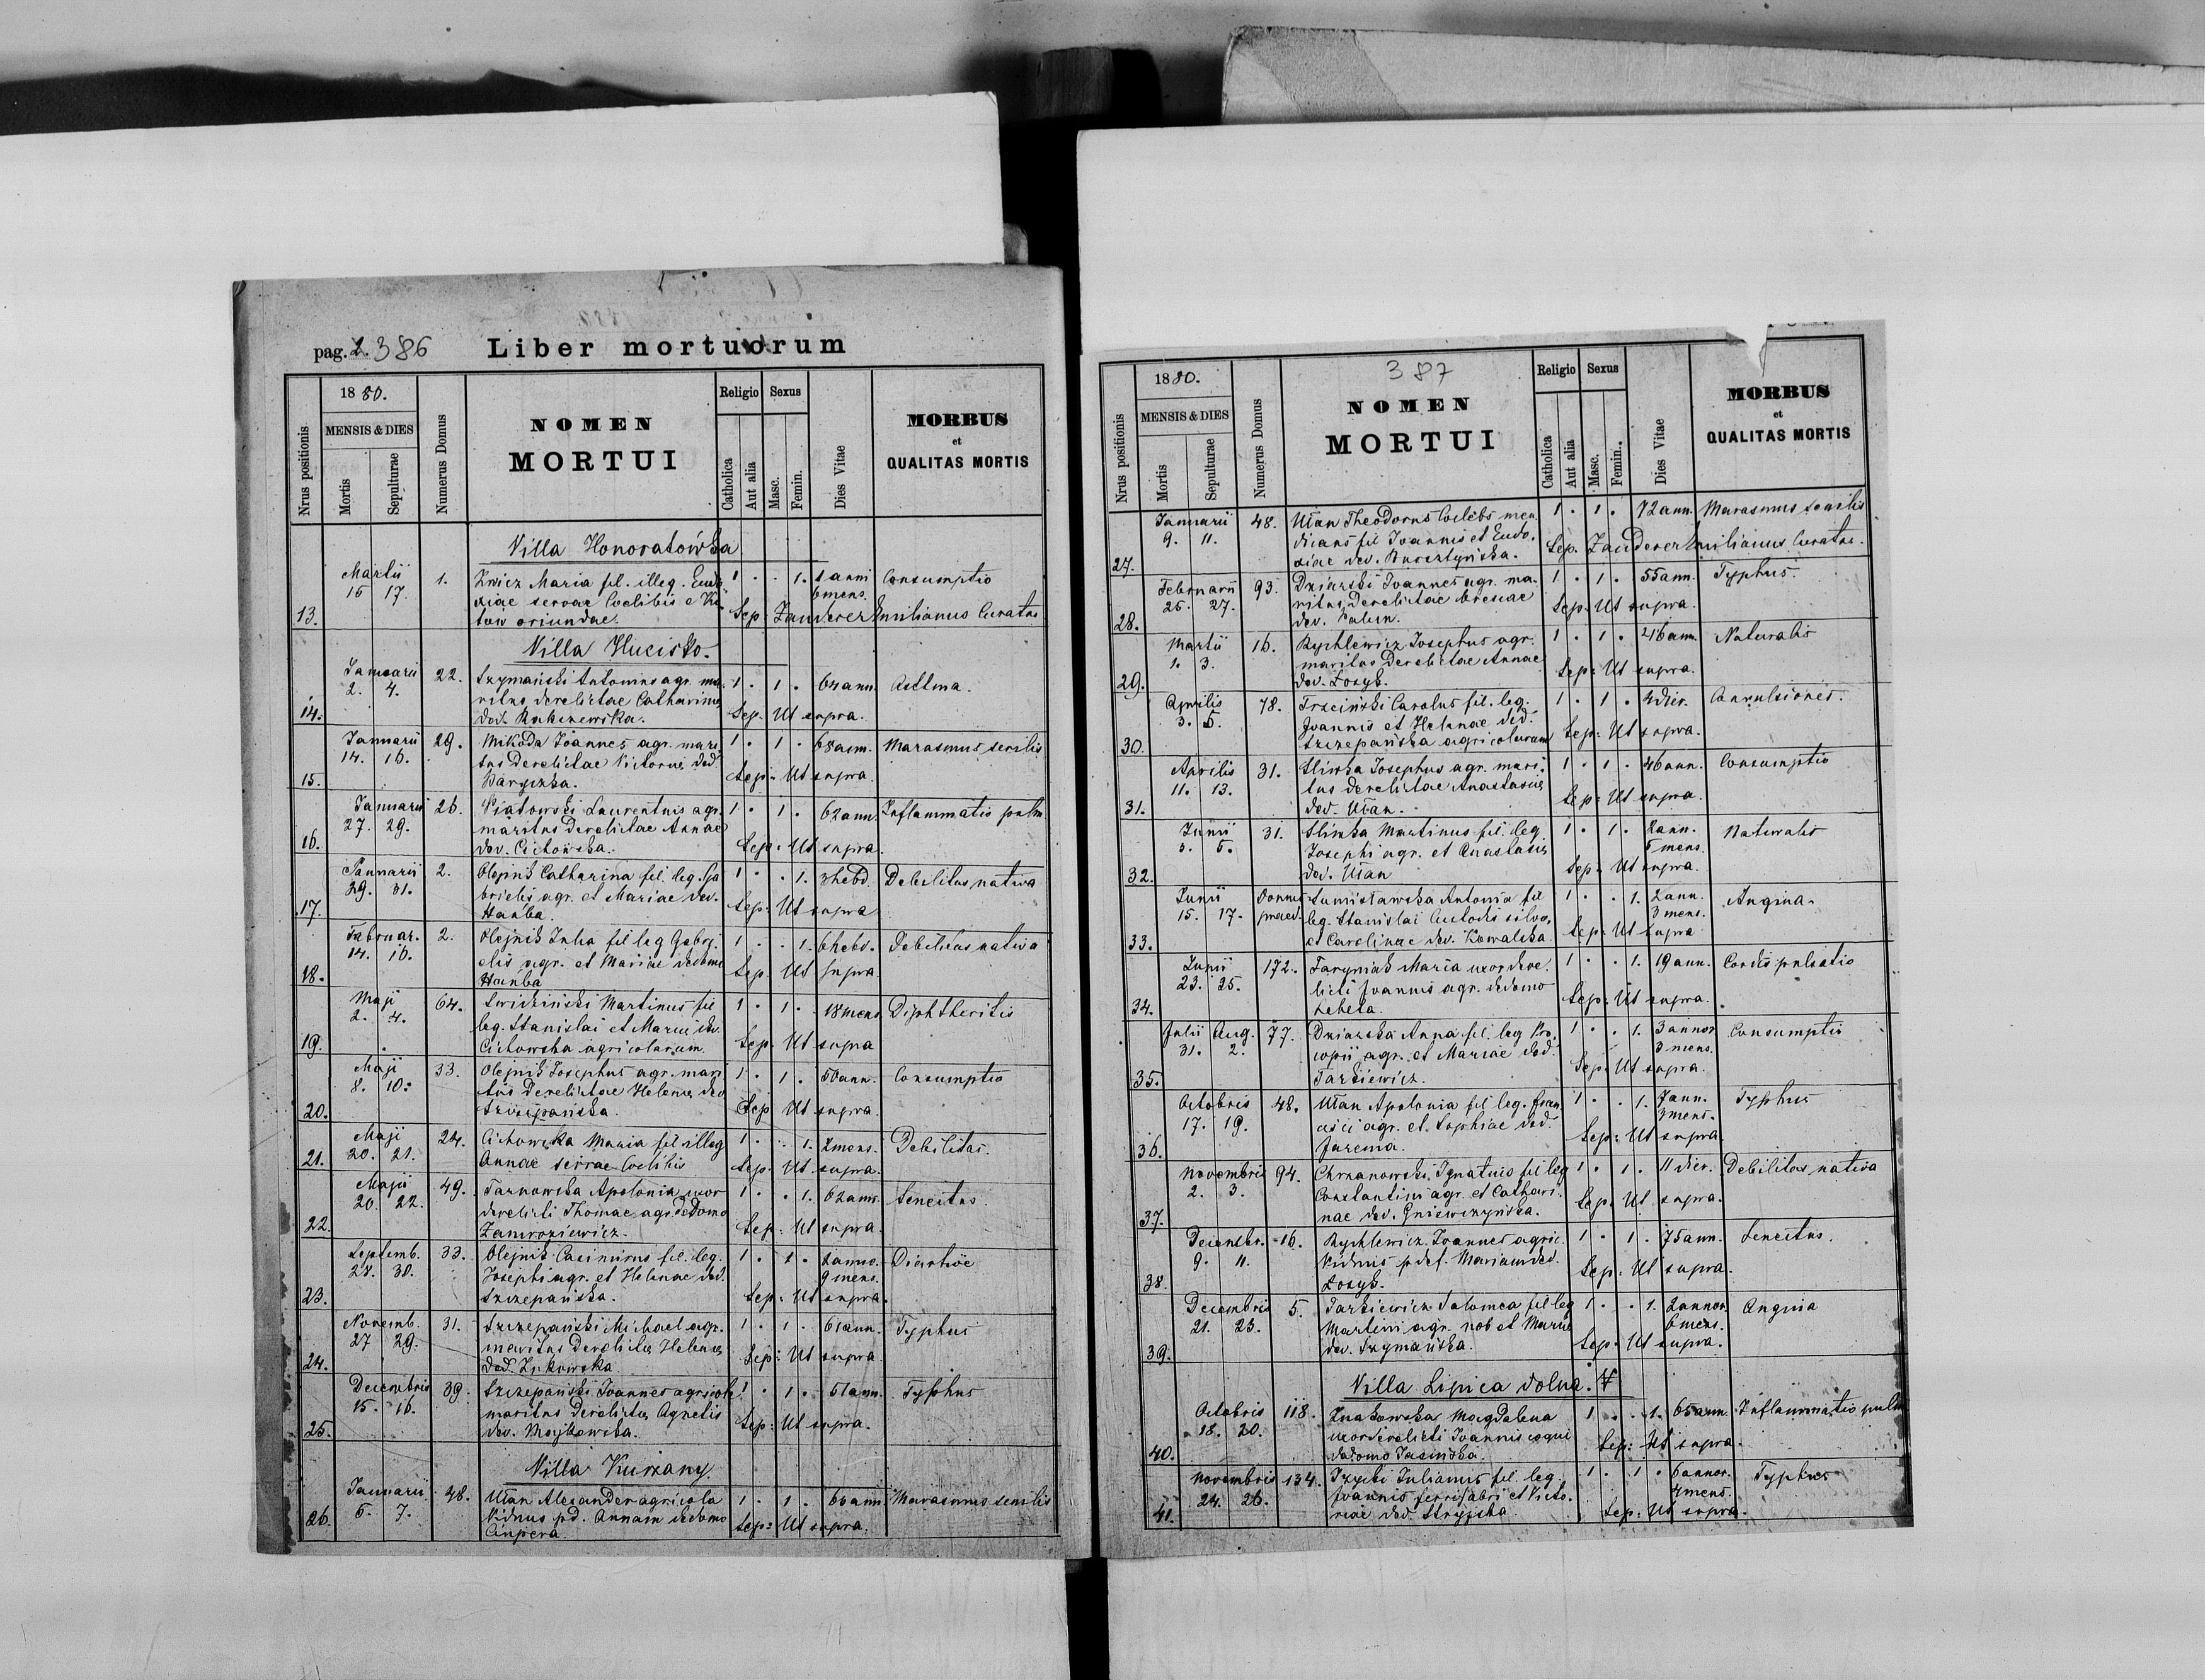 pag. 2. 386 Liber mortuorum
Nrus positionis
1880.
MENSIS & DIES
Mortis
Sepulturae
Numerus Domus
NOMEN
MORTUI
Religio
Catholica
Aut alia
Sexus
Masc.
Femin.
Dies Vitae
MORBUS
et
QUALITAS MORTIS
Villa Honoratówka
Martii 1. Knicz Maria fil. illeg. Eudo 1 . . 1. 1 anni Consumptio
16 17. xiae servae Coelibis e Ko 6 mens.
13. tow oriundae. Sep: Zanderer Emilianus Curatus
Villa Hucisko.
Januarii 22. Szymański Antonius agr. ma 1 . 1 . 64 ann. Asthma.
2. 4. ritus derelictae Catharinae
14. dod. Sep. Ut supra.
Januarii 29. Mikoda Joannes agr. mari 1 . 1 . 68 ann. Marasmus senilis
14. 16. tus derelictae Victoriae dod.
15. Baryczka. Sep: Ut supra
Januarii 26. Piatowski Laurentius agr. 1 . 1 . 62 ann. Inflammatio pulm
27. 29. maritus derelictae Annae
16. dod. Cichowska. Sep. Ut supra.
Januarii 2. Olejnik Catharina fil. leg. Ga 1 . . 1. 3 hebd. Debilitas nativa
29. 31. brielis agr. et Mariae dod.
17. Hańba. Sep. Ut supra
Februar. 2. Olejnik Julia fil leg Gabri 1 . . 1. 6 hebd. Debilitas nativa
14. 16. elis agr. et Mariae dedomo
18. Hańba Sep. Ut supra
Maji 64. Martinus fil 1 . 1 . 18 mens Diphtheritis
2. 4. leg. Stanislai et Mariae dod.
19. Cichowska agricolarum. Sep. Ut supra
Maji 33. Olejnik Josephus agr. mari 1 . 1 . 50 ann. Consumptio
8. 10. tus derelictae Helenae dod
20. Szczepańska. Sep Ut supra.
Maji 24. Cichowska Maria fil illeg 1 . . 1. 2 mens. Debilitas.
21. 20. 21. Annae servae Coelibis Sep. Ut supra.
Maji 49. Tarnowska Apolonia uxor 1 . . 1. 62 ann. Senectus.
20. 22. derelicti Thomae agr. dedomo
22. Zamroziewicz. Sep. Ut supra.
Septemb. 33. Olejnik Casimirus fil. leg. 1 . 1 . 2 annor.
28. 30. Josephi agr. et Helenae dod. 9 mens.
23. Szczepańska. Sep. Ut supra.
Novemb. 31. Szczepański Michael agr. 1 . 1 . 61 ann. Typhus
27 29. maritus derelictae Helenae
24. dod. Żukowska Sep: Ut supra
Decembris 39. Szczepański Joannes agricola 1 . 1 . 51 ann. Typhus
15. 16. maritus derelictae Agnetis
25. dod. Majkowska. Sep: Ut supra.
Villa Kurzany.
Januarii 48. Ułan Alexander agricola 1 . 1 . 66 ann Marasmus senilis
5. 7. viduus pd. Annam dedomo
26. Ciupera. Sep: Ut supra.
387
Nrus positionis
1880.
MENSIS & DIES
Mortis
Sepulturae
Numerus Domus
NOMEN
MORTUI
Religio
Catholica
Aut alia
Sexus
Masc.
Femin.
Dies Vitae
MORBUS
et
QUALITAS MORTIS
Januarii 48. Ułan Theodorus Coelebs men 1 . 1 . 72 ann. Marasmus senilis
9. 11. dicans fil Joannis et Eudo.
27. xiae dod. Bursztyńska. Sep. Zanderer Emilianus Curatus.
Februarii 93. Dziurski Joannes agr. ma 1 . 1 . 55 ann. Typhus.
25. 27. ritus derelictae
28. dod. Sep. Ut supra.
Martii 16. Rychlewicz Josephus agr. 1 . 1 . 46 ann. Naturalis
1. 3. maritus derelictae Annae
29. dod. Łozyk. Sep: Ut supra.
Aprilis 78. Trzciński Carolus fil. leg. 1 . 1 . 4 dier. Convulsiones.
3. 5. Joannis et Helenae dod.
30. Szczepańska agricolarum Sep: Ut supra.
Aprilis 31. Śliwka Josephus agr. mari. 1 . 1 . 46 ann. Consumptio
11. 13. tus derelictae Anastasiae
31. dod. Ułan. Sep: Ut supra.
Junii 31. Śliwka Martinus fil. leg. 1 . 1 . 2 ann. Naturalis
3. 5. Josephi agr. et Anastasiae 5 mens.
32. dod. Ułan Sep: Ut supra.
Junii Domus Antonia fil 1 . . 1. 2 ann. Angina.
15. 17. praed. leg. Stanislai Custodis silvae 3 mens.
33. et Carolinae dod. Kowalska. Sep: Ut supra
Junii 172. Taryniak Maria uxor dere. 1 . . 1. 19 ann. Cordis pulsatio
23. 25. licti Joannis agr. dedomo
34. Lebeta. Sep: Ut supra.
Julii Aug. 77. Dziurska Anna fil. leg Pro. 1 . . 1. 3 annor Consumptio
31. 2. copii agr. et Mariae dod. 3 mens.
35. Tarkiewicz. Sep. Ut supra.
Octobris 48. Ułan Apolonia fil leg. Fran 1 . . 1. 7 ann. Typhus
17. 19. cisci agr. et Sophiae dod. 3 mens.
36. Jarema. Sep: Ut supra
Novembris 94. Chrzanowski Ignatius fil leg 1 . 1 . 11 dier. Debilitas nativa
2. 3. Constantini agr. et Cathari.
37. nae dod. Gniewczyńska. Sep. Ut supra.
Decembr. 16. Rychlewicz Joannes agric. 1 . 1 . 75 ann. Senectus.
9. 11. viduus pdef. Mariam dod.
38. Łozyk. Sep: Ut supra.
Decembris 5. Tarkiewicz Salomea fil leg 1 . . 1. 2 annor Angina
21. 23. Martini agr. nob et Mariae 6 mens.
39. dod. Szymańska. Sep: Ut supra.
Villa Lipica dolna.
Octobris 118. Żukowska Magdalena 1 . . 1. 65 ann. Inflammatio pulm
18. 20. uxor derelicti Joannis coqui
40. dedomo Jasińska. Sep: Ut supra.
Novembris 134. Julianus fil. leg. 1 . 1 . 6 annor. Typhus
24. 26. Joannis ferrifabri et Victo. 4 mens.
41. riae dod. Stryjska. Sep: Ut supra.